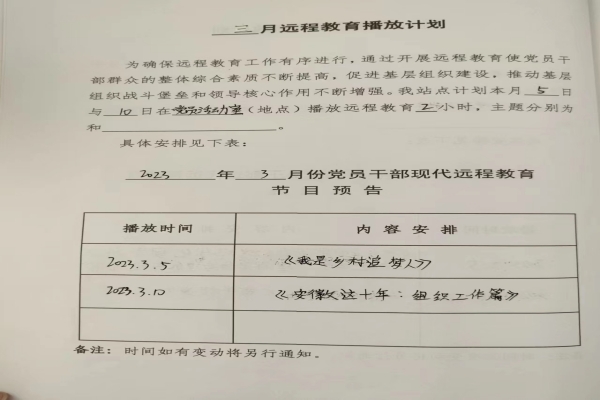 三 月远程教育播放计划
为确保远程教育工作有序进行，通过开展远程教育使党员干
部群众的整体综合素质不断提高，促进基层组织建设，推动基层
组织战斗堡垒和领导核心作用不断增强。我站点计划本月 5 日
与 10 日在党员活动室（地点）播放远程教育 2 小时，主题分别为
和 。
具体安排见下表：
2023 年 3 月份党员干部现代远程教育
节目预告
播放时间 内容安排
2023.3.5 《我是乡村追梦人》
2023.3.10 《安徽这十年：组织工作篇》
备注：时间如有变动将另行通知。